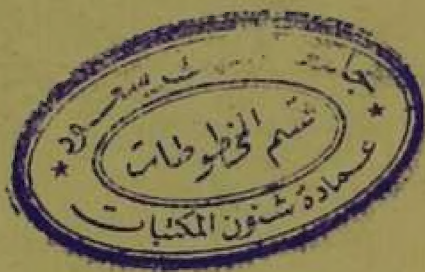 جامعة سعود
قسم المخطوطات
عمادة شئون المكتبات